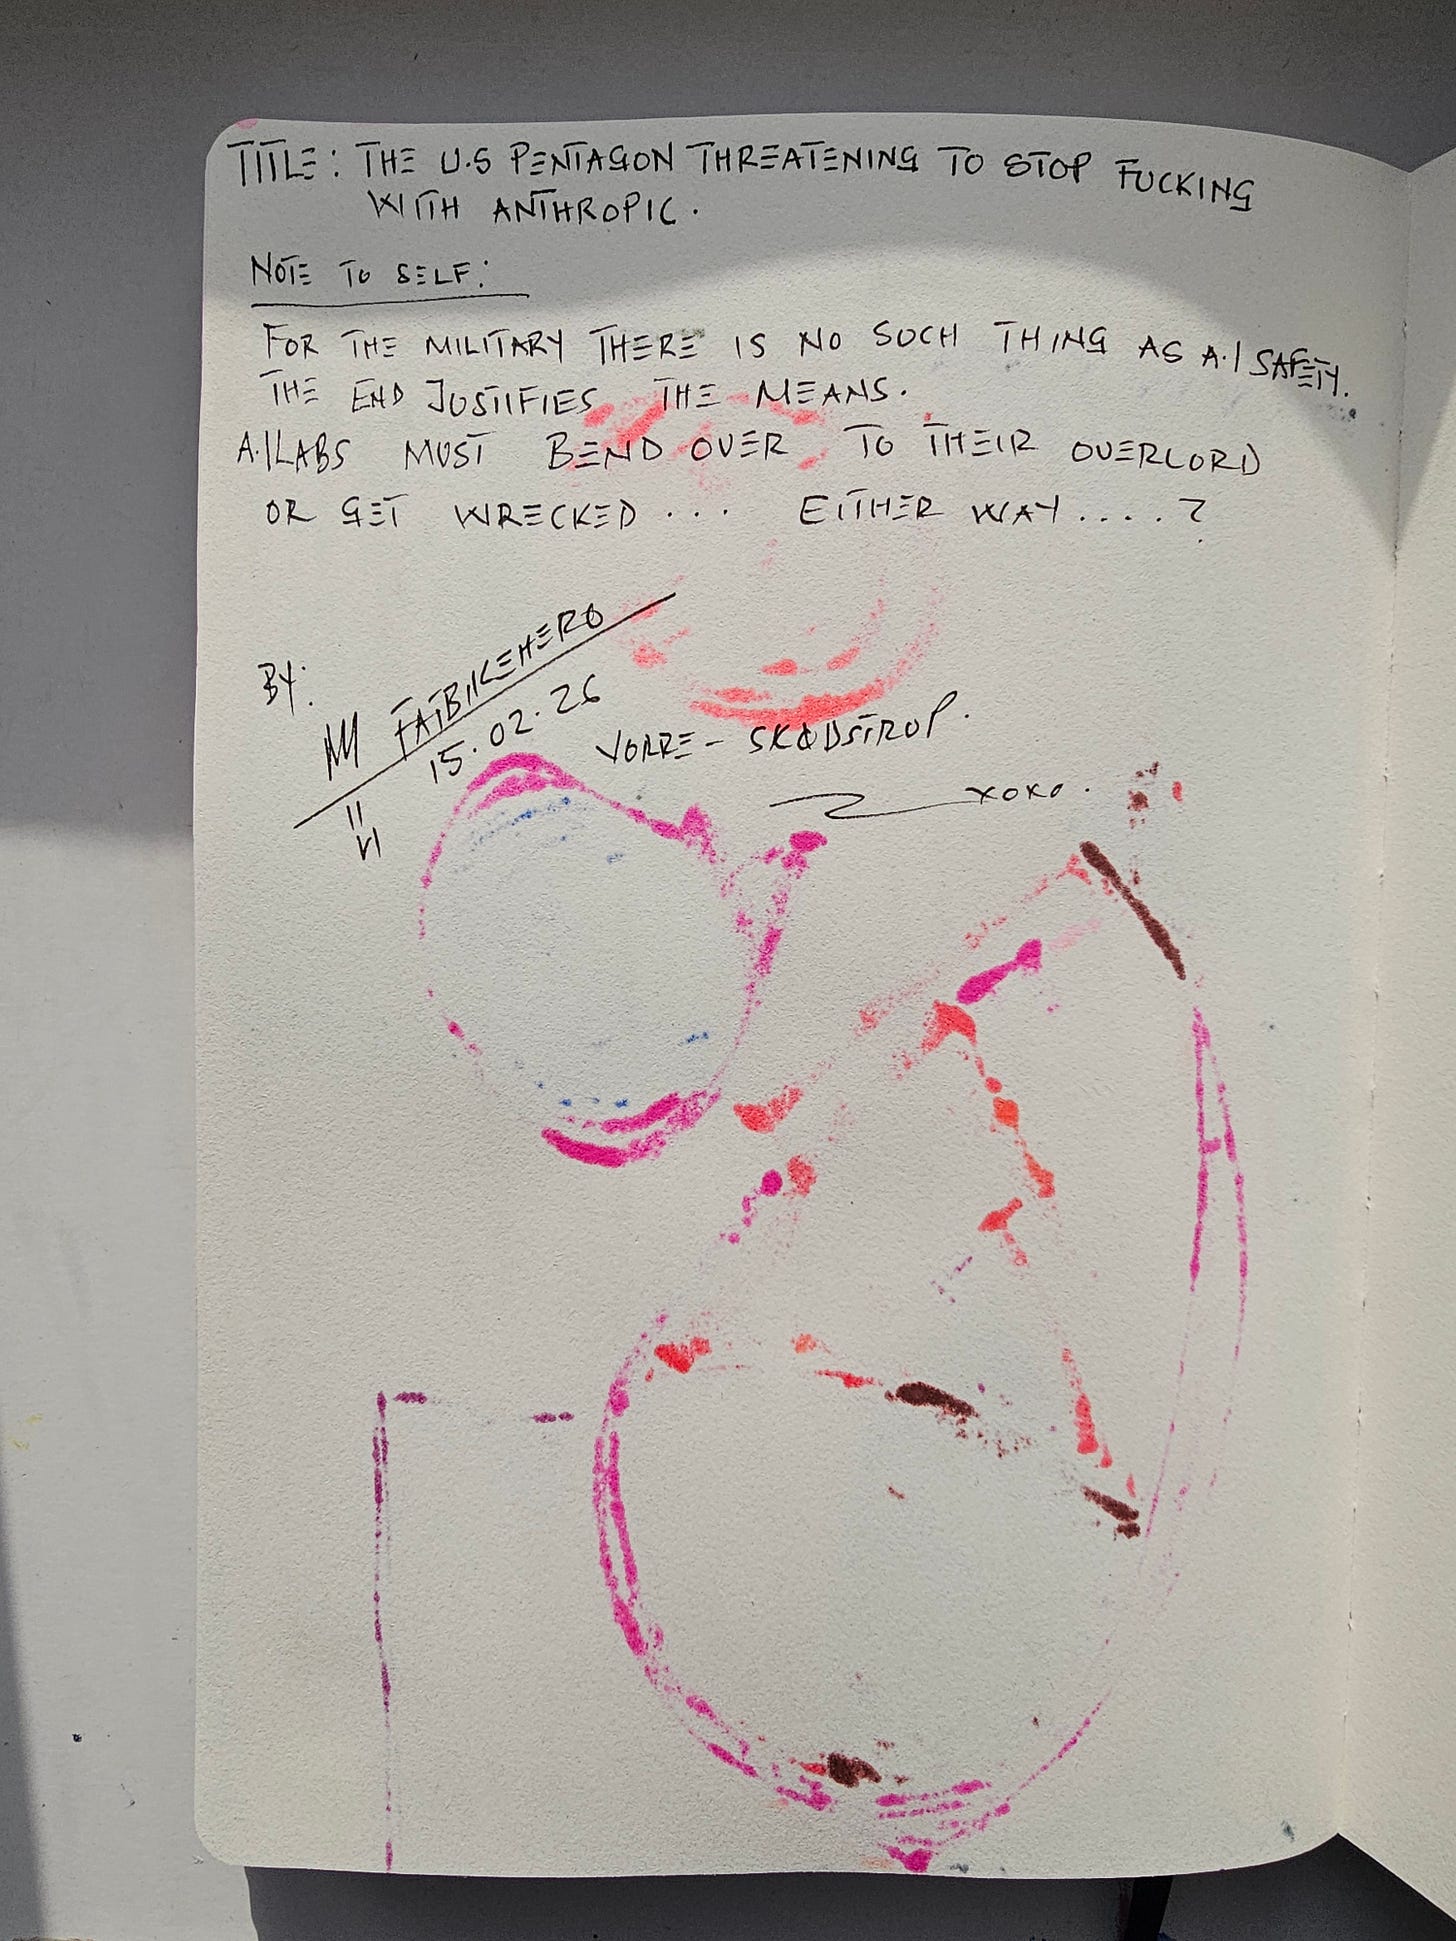 TITLE: THE U.S PENTAGON THREATENING TO STOP FUCKING
WITH ANTHROPIC.
NOTE TO SELF:
FOR THE MILITARY THERE IS NO SUCH THING AS A.I SAFETY.
THE END JUSTIFIES THE MEANS.
A.I LABS MUST BEND OVER TO THEIR OVERLORD
OR GET WRECKED ... EITHER WAY ....?
BY:
FATBIKEHERO
15.02.26
VORRE - SKØDSTRUP.
XOXO.